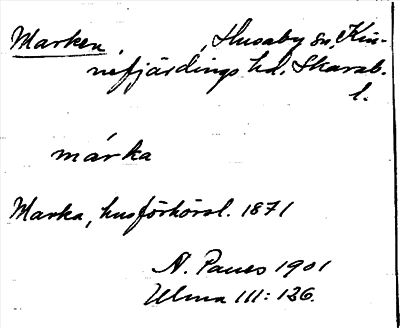 Marken, , Husaby sn, Kin-
nefjärdings hd. Skarab.
l.
márka
Marka, husförhörsl. 1871
N. Paues 1901
Ulma III: 136.